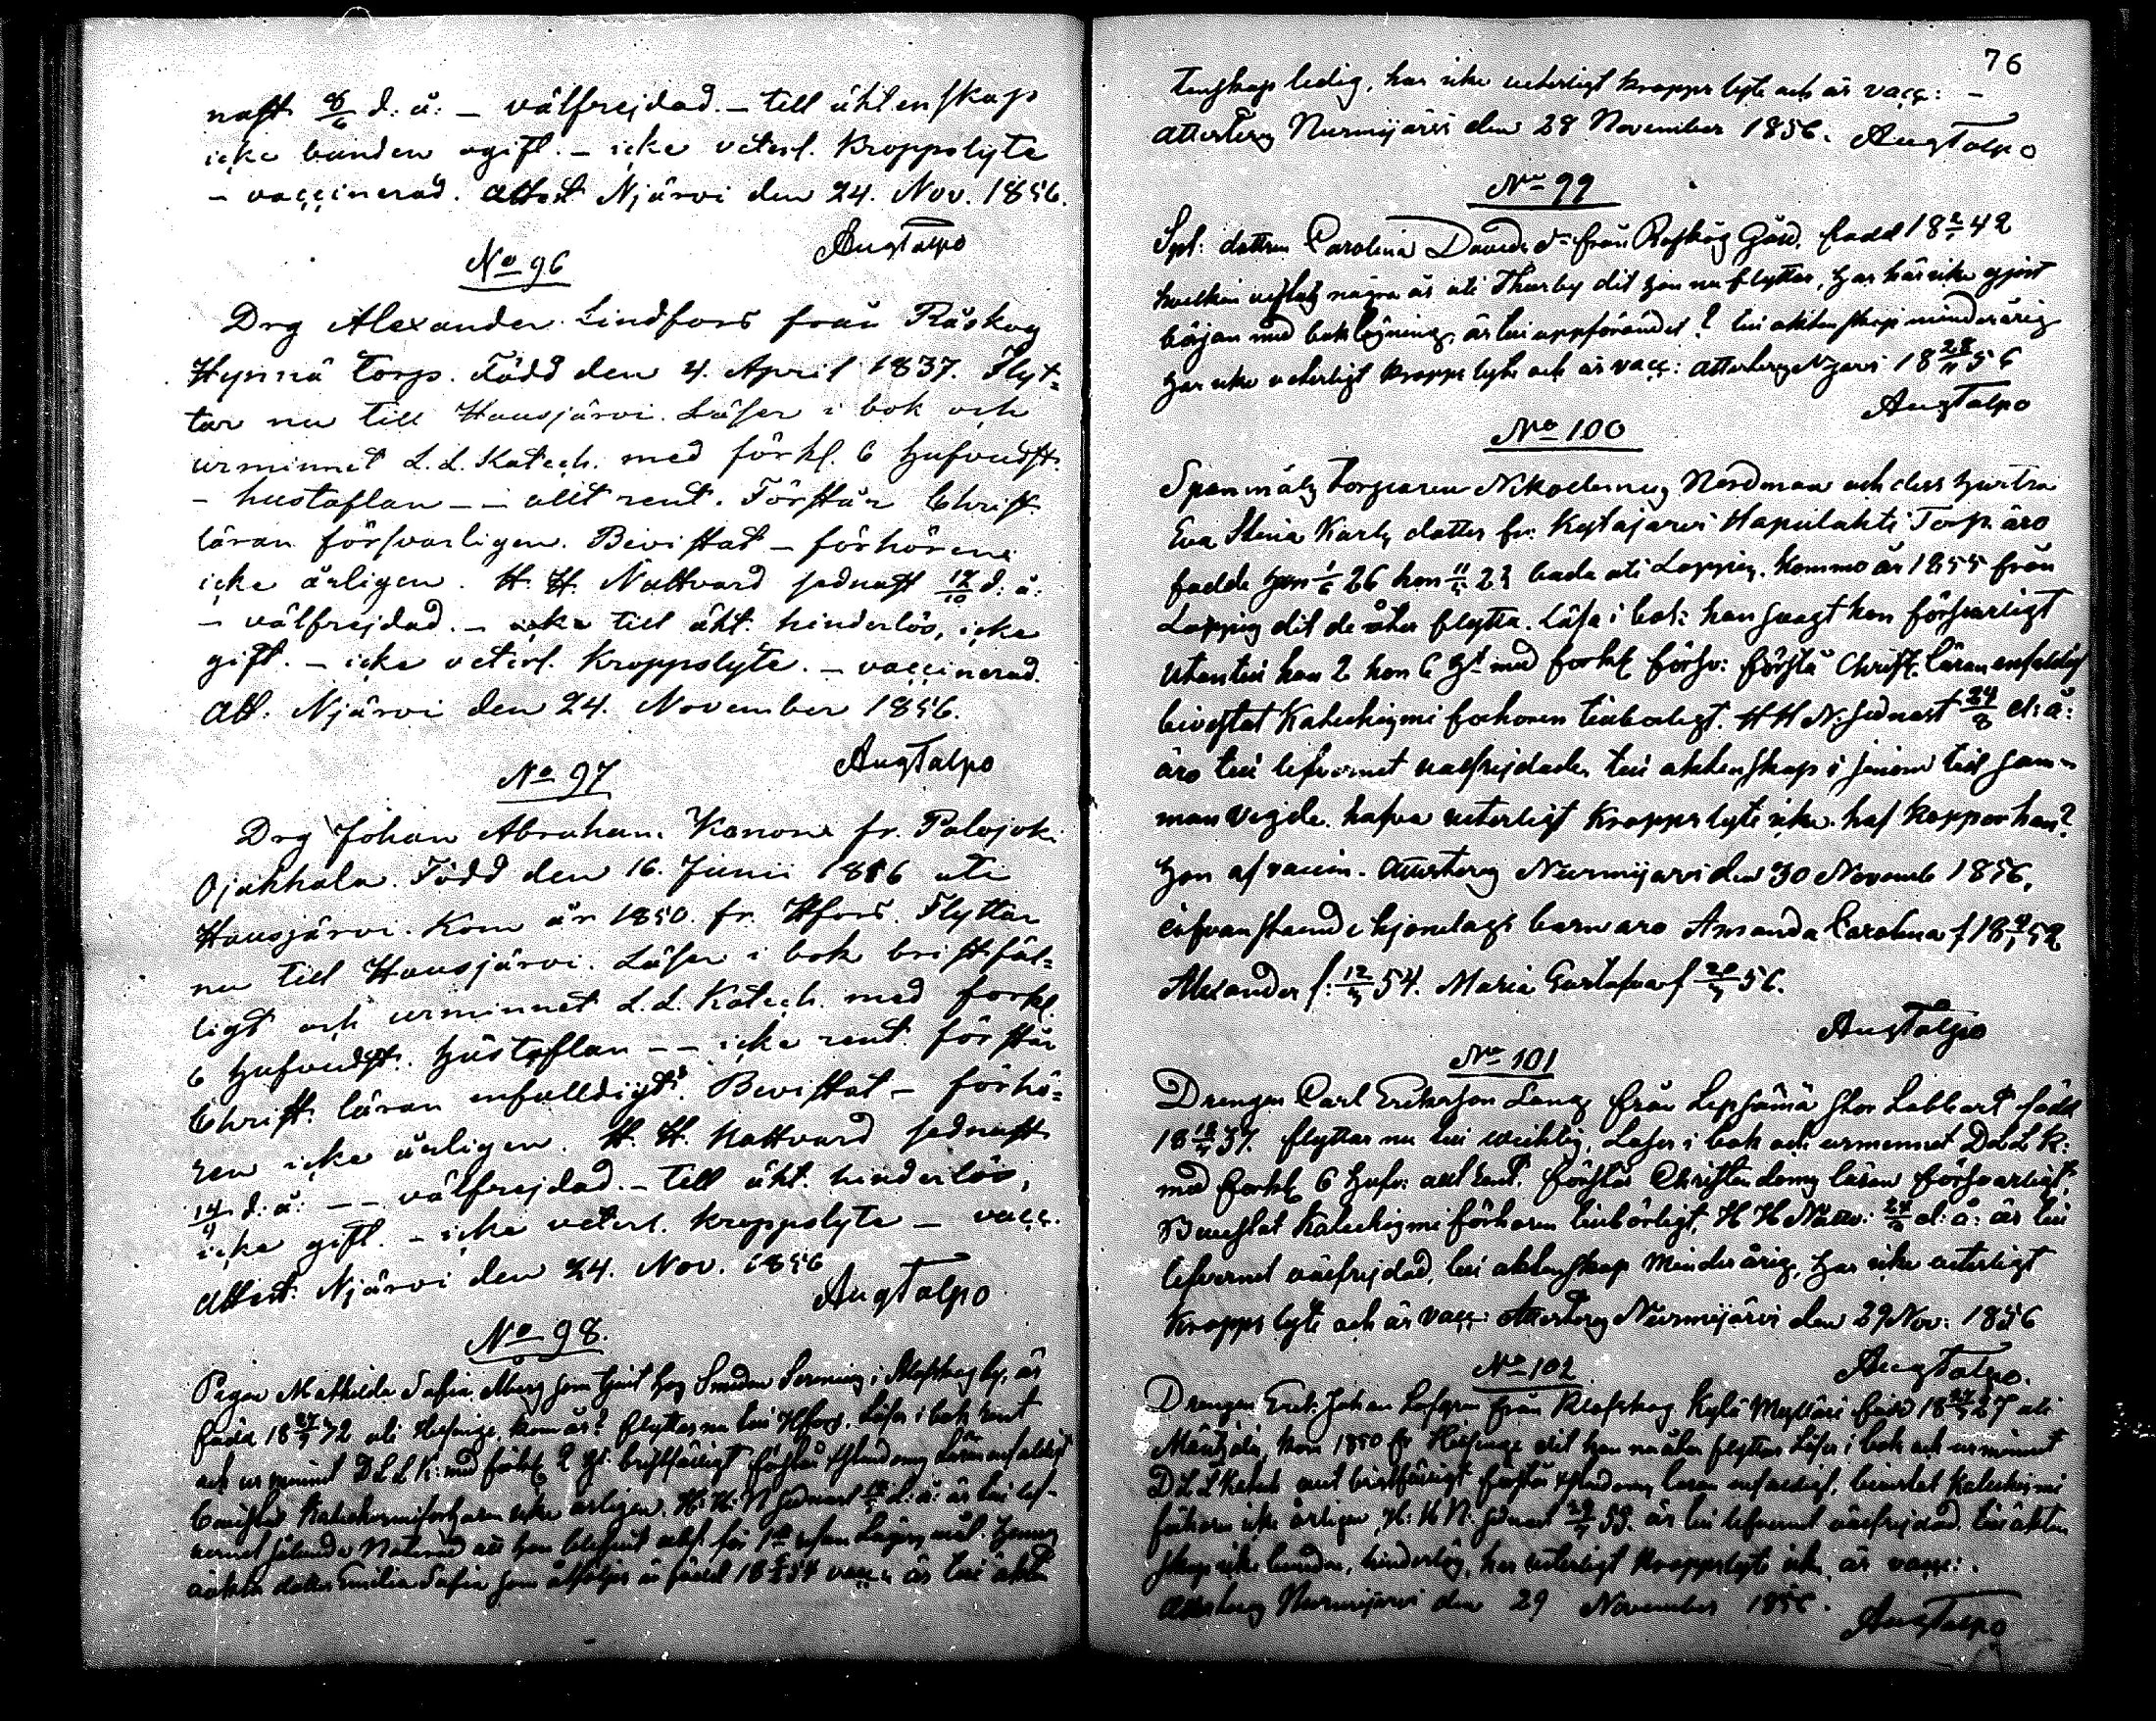 nast 8/6 d: å: – välfrejdad. – till äktenskap
icke bunden ogift. – icke veterl. kroppslyte
– vaccinerad. Attest Njärvi den 24. Nov. 1856.
AugTalpo
No 96
Drg Alexander Lindfors från Råskog
Hynnä torp. Född den 4. April 1837. Flyt=
tar nu till Hausjärvi. Läser i bok och
urminnet L. L. Katech. med förkl. 6 hufvudst.
– hustaflan – – allt rent. Förstår Christ.
läran försvarligen. Bevistat – förhören
icke årligen. H. H. Nattvard sednast 12/10 d: å:
– välfrejdad. – till äkt. hinderlös, icke
gift. – icke veterl. kroppslyte. – vaccinerad.
Att. Njärvi den 24. November 1856.
AugTalpo
No 97
Drg Johan Abraham Kanon fr. Palojok
Ojakkala. Född den 16. Junii 1836 uti
Hausjärvi. Kom år 1850. fr. Hfors. Flyttar
nu till Hausjärvi. Läser i bok bristfäl=
ligt och urminnet L. L. Katech. med forkl.
6 hufvudst. hustaflan – – icke rent. förstår
Christ. läran enfalldigt. Bevistat – förhö=
ren icke årligen. H. H. Nattvard sednast
14/9 d: å: – – välfrejdad. – till äkt. hinderlös,
icke gift. – icke veterl. kroppslyte – vacc.
Attest. Njärvi den 24. Nov. 1856
AugTalpo
No 98.
Pigan Mathilda Sofia Åberg som tjent hos Smeden i by, är
född 18 uti Helsinge, kom år? flyttar nu till Hfors. Läser i bok rent
och ur minnet D L L K: med förkl 2 bristfälligt förstår läran enfaldigt
bevistat Katechismiförhören icke årligen. H: H: N sednast d: å: är till lef-
vernet
äkta dotter Emilia Sofia som åtföljer är född 18 54 vacc: är till äkten
76
tenskap ledig, har icke veterligt kropps lyte och är vacc: –
Attesterас Nurmijärvi den 28 November 1856. AugTalpo
No 99
Spl: dottren Carolina Davids dr från Råskog Gård. född 18 2/7 42
hvilken vistats några år uti Thusby dit hon nu flyttar, har här icke gjort
början med bokläsning, är till uppförandet? till äktenskap minderårig
har icke veterligt kropps lyte och är vacc: Attesteras Njärvi 18 28/11 56
AugTalpo
No 100
Spanmåls Torparen Nikodemus Nordman och dess hustru
Eva Stina Karls dotter fr: Kytäjärvi Hapulahti Torp äro
födde han 1/6 26 hon 11/ 23 båda uti Loppis. Kommo år 1855 från
Loppis dit de åter flytta. Läsa i bok: han svagt hon försvarligt
utantill han 2 hon 6 H: med forkl försv: förstå Christ. läran enfaldigt
bivistat Katechismi förhören tillbörligt. H H N: sednast 24/8 d: å:
äro till lefvernet välfrejdade, till äktenskap i sin om tid sam-
man vigde. hafva veterligt kropps lyte icke. haf koppor han?
hon af vaccin. Attesteras Nurmijärvi den 30 Novemb 1856,
ofvanstående hjonelags barn äro Amanda Carolina f 18 52
Alexander f: 12/ 54. Maria Gustafva f 56.
AugTalpo
No 101
Drengen Carl Eriksson Lang från Lepsämä stor Labbart född
18 37. flyttar nu till Wichtis, Läser i bok och urminnet D L L K:
med forkl 6 hufv: allt rent. förstår Christendoms läran försvarligt,
Bevistat Katechismi förhören tillbörligt, H H Nattv: d: å: är till
lefvernet välfrejdad, till äktenskap Minderårig, har icke veterligt
Kropps lyte och är vacc: Attesteras Nurmijärvi den 29 Nov: 1856
AugTalpo.
No 102
Drengen Erik Johan Löfgren från Kylä född 18 27 uti
Mäntsälä, kom 1850 fr Helsinge dit han nu åter flyttar Läser i bok och urminnet
D L L Katech bristfälligt förstår läran enfaldigt, bevistat Katechismi
förhören icke årligen, H: H N: sednast 53. är till lefvernet välfrejdad. till äkten
skap icke bunden, hinderlös, har veterligt kroppslyte icke, är vacc:.
Attesteras Nurmijärvi den 29 November 1856.
AugTalpo